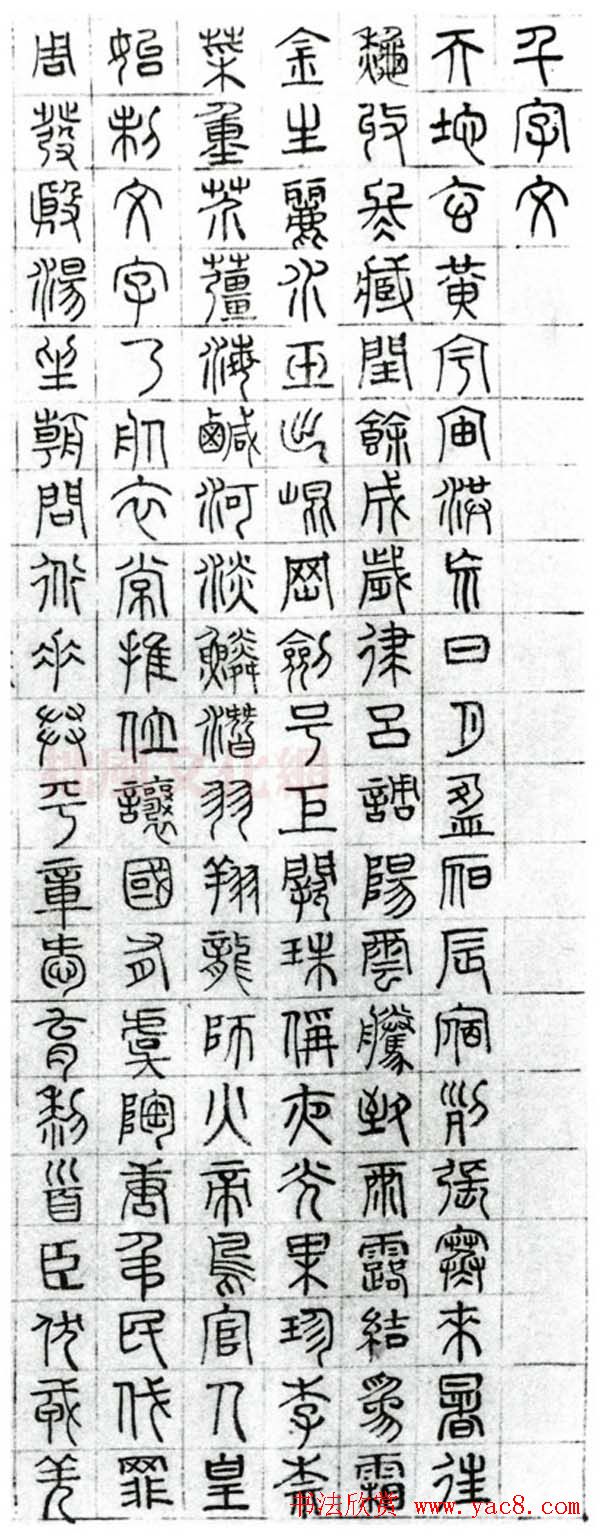 千字文
天地玄黃宇宙洪荒日月盈昃辰宿列張寒來暑往
秋收冬藏閏餘成歲律呂調陽雲騰致雨露結爲霜
金生麗水玉出崐岡劍号巨闕珠稱夜光果珍李柰
菜重芥薑海鹹河淡鱗潛羽翔龍師火帝鳥官人皇
始制文字乃服衣常推位讓國有虞陶唐弔民伐罪
周發殷湯坐朝問道垂拱平章愛育黎首臣伏戎羌
书法欣赏
www.yac8.com